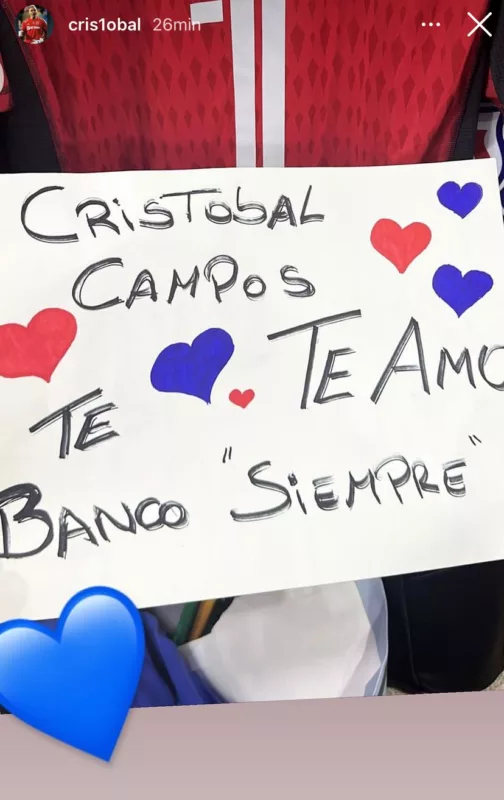 cris1obal 26min
CRISTOBAL
CAMPOS
TE AMO
TE
BANCO "SIEMPRE"